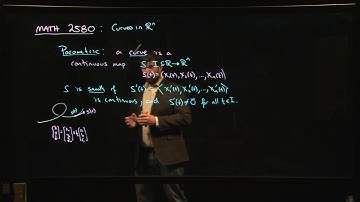 MATH 2580: Curves in ℝⁿ
Parametric: a curve is a
continuous map S: I ⊆ ℝ → ℝⁿ
S(t) = (x₁(t), x₂(t), ..., xₙ(t))
S is smooth if S'(t) = (x₁'(t), x₂'(t), ..., xₙ'(t))
is continuous, and S'(t) ≠ 0⃗ for all t ∈ I.